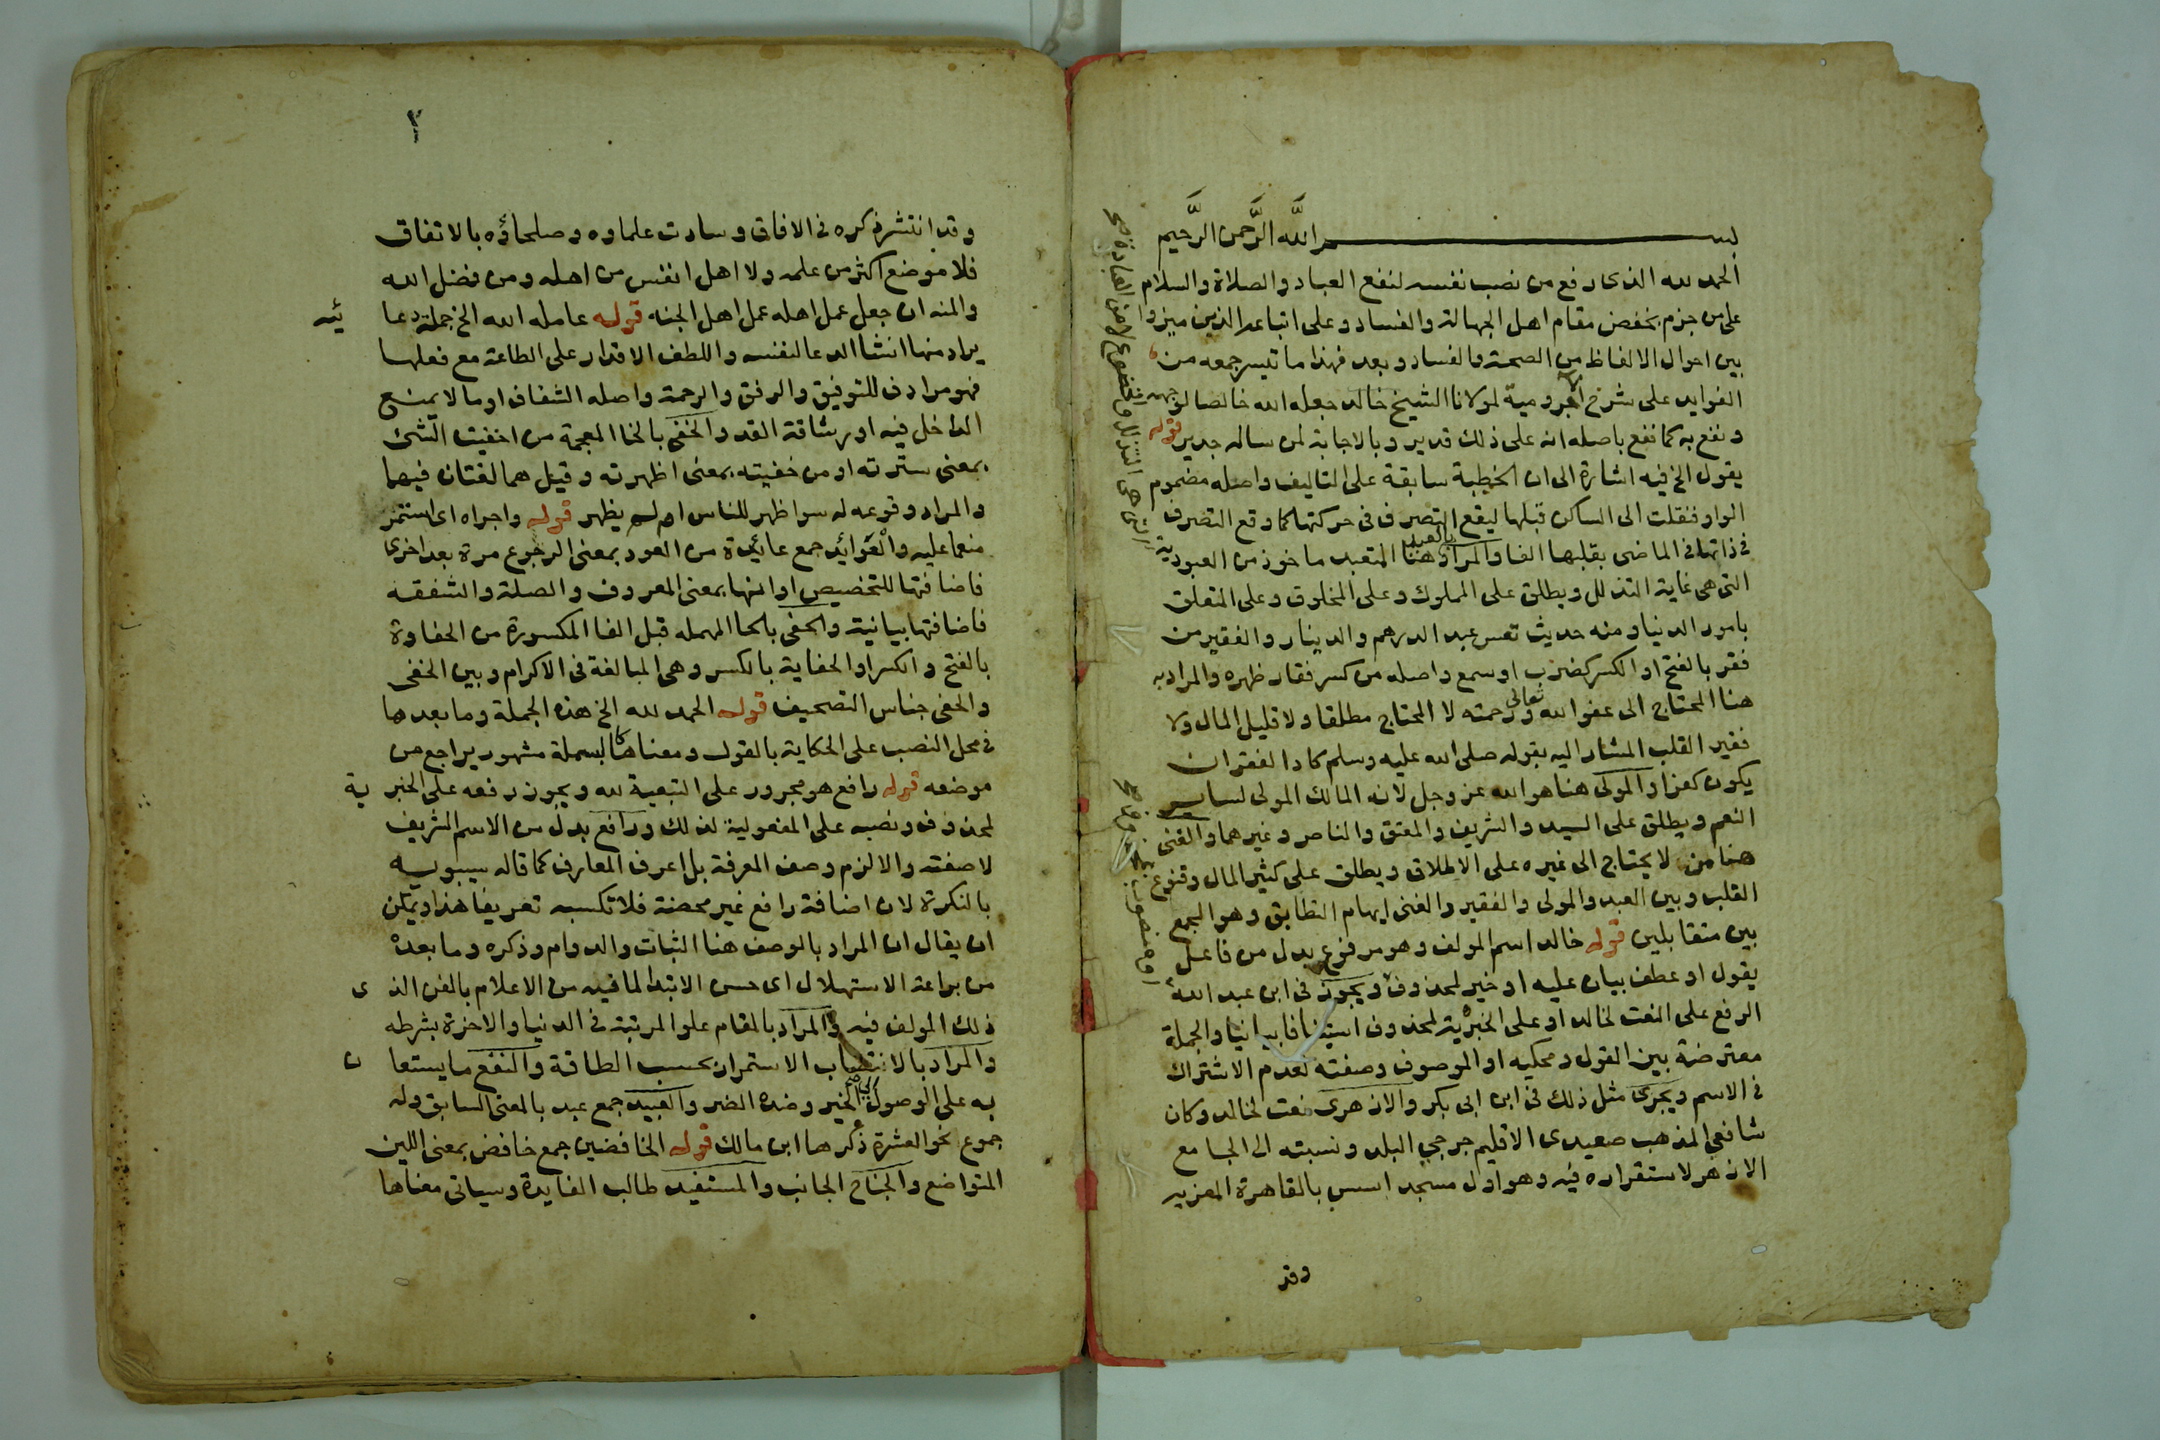 بسم الله الرَّحمن الرَّحيم
الحمد لله الذى رفع من نصب نفسه لنفع العباد والصلاة والسلام
على من جزم بخفض مقام اهل الجهالة والفساد وعلى اتباعه الذين ميزوا
بين احوال الالفاظ من الصحة والفساد وبعد فهذا ما تيسر جمعه من
الفوايد على شرح الاجرومية لمولانا الشيخ خالد جعله الله خالصا لوجهه
ونفع به كما نفع باصله انه على ذلك قدير وبالاجابة لمن ساله جدير قوله
يقول الخ فيه اشارة الى ان الخطبة سابقة على التاليف واصله مضموم
الواو فنقلت الى الساكن قبلها ليقع التصرف فى حركتها كما وقع التصرف
فى ذاتها فى الماضى بقلبها الفا والمراد بالعبد هنا المتعبد ماخوذ من العبودية
التى هى غاية التذلل ويطلق على المملوك وعلى المخلوق وعلى المتعلق
بامور الدنيا ومنه حديث تعس عبد الدرهم والدينار والفقير من
فقر بالفتح او الكسر كضرب او سمع واصله من كسر فقار ظهره والمراد به
هنا المحتاج الى عفو الله تعالى ورحمته لا المحتاج مطلقا ولا قليل المال ولا
فقير القلب المشار اليه بقوله صلى الله عليه وسلم كاد الفقر ان
يكون كفرا والمولى هنا هو الله عز وجل لانه المالك المولى لساير
النعم ويطلق على السيد والشريف والمعتق والناصر وغيرهما والغنى
هنا من لا يحتاج الى غيره على الاطلاق ويطلق على كثير المال وقنوع
القلب وبين العبد والمولى والفقير والغنى ايهام التطابق وهو الجمع
بين متقابلين قوله خالد اسم المولف وهو مرفوع بدل من فاعل
يقول او عطف بيان عليه او خبر لمحذوف ويجوز فى ابن عبد الله
الرفع على النعت لخالد او على الخبرية لمحذوف استينافا بيانيا والجملة
معترضة بين القول ومحكيه او الموصوف وصفته لعدم الاشتراك
فى الاسم ويجرى مثل ذلك فى ابن ابى بكر والازهرى نعت لخالد وكان
شافعي المذهب صعيدى الاقليم جرجي البلد ونسبته الى الجامع
الازهر لاستقراره فيه وهو اول مسجد اسس بالقاهرة المعزيه
وقد
٢
وقد انتشر ذكره فى الافاق وسادت علماوه وصلحاؤه بالاتفاق
فلا موضع اكثر من علمه ولا اهل انفس من اهله ومن فضل الله
والمنه ان جعل عمل اهله عمل اهل الجنه قوله عامله الله الخ جملة دعائيه
يراد منها انشا الدعا لنفسه واللطف الاقدار على الطاعة مع فعلها
فهو مرادف للتوفيق والرفق والرحمة واصله الشفاف او ما لا يمنع
الداخل فيه او رشاقة القد والخفى بالخا المعجمة من اخفيت الشئ
بمعنى سترته او من خفيته بمعنى اظهرته وقيل هما لغتان فيهما
والمراد وقوعه له سوا ظهر للناس ام لم يظهر قوله واجراه اى استمر
منعما عليه والعوايد جمع عائدة من العود بمعنى الرجوع مرة بعد اخرى
فاضافتها للتخصيص او انها بمعنى المعروف والصلة والشفقه
فاضافتها بيانية والحفى بالحا المهمله قبل الفا المكسورة من الحفاوة
بالفتح والكسر او الحفاية بالكسر وهى المبالغة فى الاكرام وبين الخفى
والحفى جناس التصحيف قوله الحمد لله الخ هذه الجملة وما بعدها
فى محل النصب على الحكاية بالقول ومعناها كالبسملة مشهور يراجع من
موضعه قوله رافع هو مجرور على التبعية لله ويجوز رفعه على الخبرية
لمحذوف ونصبه على المفعولية لذلك ورافع بدل من الاسم الشريف
لا صفته والا لزم وصف المعرفة بل اعرف المعارف كما قاله سيبويه
بالنكرة لان اضافة رافع غير محضة فلا تكسبه تعريفا هذا ويمكن
ان يقال ان المراد بالوصف هنا الثبات والدوام وذكره وما بعده
من براعة الاستهلال اى حسن الابتدا لما فيه من الاعلام بالفن الذى
ذلك المولف فيه والمراد بالمقام علو المرتبة فى الدنيا والاخرة بشرطه
والمراد بالانتصاب الاستمرار بحسب الطاقة والنفع ما يستعان
به على الوصول الى الخير وضده الضر والعبيد جمع عبد بالمعنى السابق وله
جموع نحو العشرة ذكرها ابن مالك قوله الخافضين جمع خافض بمعنى اللين
المتواضع والجناح الجانب والمستفيد طالب الفايدة وسياتى معناها